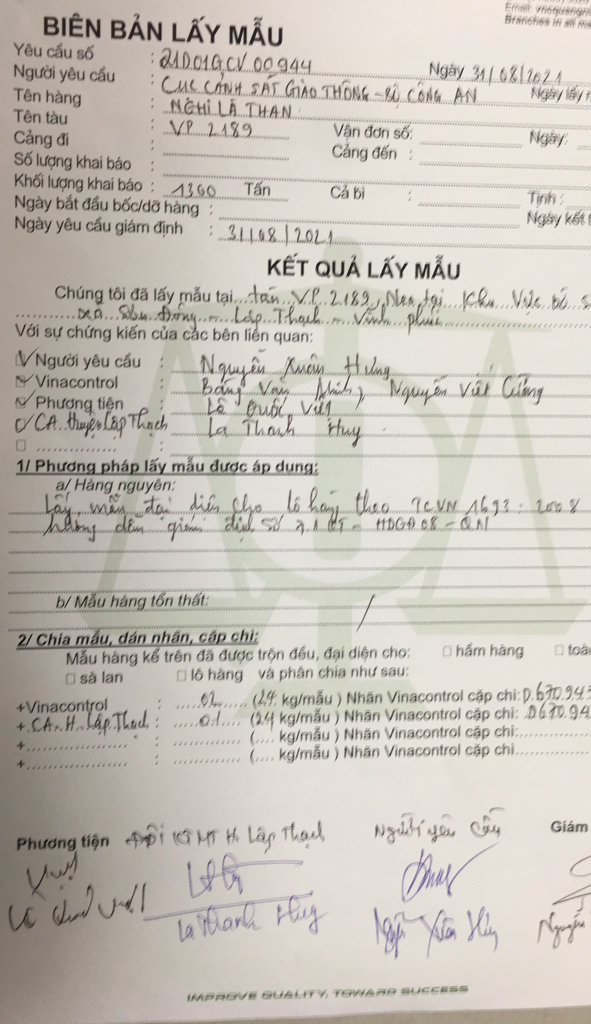 Email:
Branches in all
BIÊN BẢN LẤY MẪU
Yêu cầu số : 21D01GCV 00944 Ngày 31/08/2021
Người yêu cầu : CỤC CẢNH SÁT GIAO THÔNG - BỘ CÔNG AN Ngày lấy
Tên hàng : NGHI LÀ THAN
Tên tàu : VP 2189 Vận đơn số: Ngày:
Cảng đi : Cảng đến :
Số lượng khai báo :
Khối lượng khai báo : 1300 Tấn Cả bì : Tịnh :
Ngày bắt đầu bốc/dỡ hàng : Ngày kết
Ngày yêu cầu giám định : 31/08/2021
KẾT QUẢ LẤY MẪU
Chúng tôi đã lấy mẫu tại tàu VP 2189, Neo tại Khu Vực
xã - Lập Thạch - Vĩnh phúc
Với sự chứng kiến của các bên liên quan:
Người yêu cầu : Nguyễn Xuân Hưng
Vinacontrol : Văn Minh, Nguyễn Viết Cường
Phương tiện : Lê Quốc Việt
CA. Huyện Lập Thạch La Thanh Huy
1/ Phương pháp lấy mẫu được áp dụng:
a/ Hàng nguyên:
Lấy mẫu đại diện cho lô hàng theo TCVN 1693 : 2008
hướng dẫn giám định số HDGĐ 08 - QN
b/ Mẫu hàng tổn thất: /
2/ Chia mẫu, dán nhãn, cặp chì:
Mẫu hàng kể trên đã được trộn đều, đại diện cho: hầm hàng
sà lan lô hàng và phân chia như sau:
+Vinacontrol : 02 (24 kg/mẫu ) Nhãn Vinacontrol cặp chì: D.670943
+ CA. H. Lập Thạch : 01 (24 kg/mẫu ) Nhãn Vinacontrol cặp chì: D670.94
+ : (.... kg/mẫu ) Nhãn Vinacontrol cặp chì:
+ : (.... kg/mẫu ) Nhãn Vinacontrol cặp chì
Phương tiện Đội H. Lập Thạch Người yêu cầu Giám
La Thanh Huy Nguyễn Xuân Nguyễn
IMPROVE QUALITY, TOWARD SUCCESS